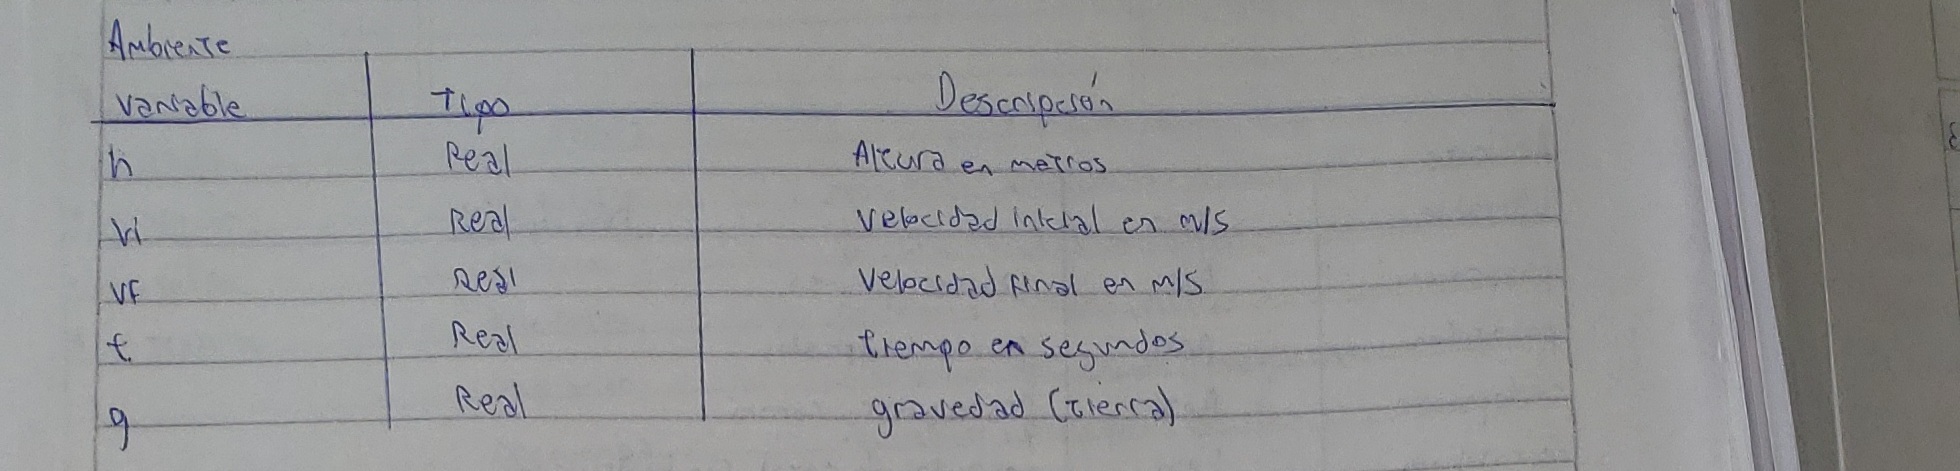 Ambiente
Variable Tipo Descripción
h Real Altura en metros
Vi Real Velocidad inicial en m/s
VF Real Velocidad Final en m/s
t Real tiempo en segundos
g Real gravedad (tierra)